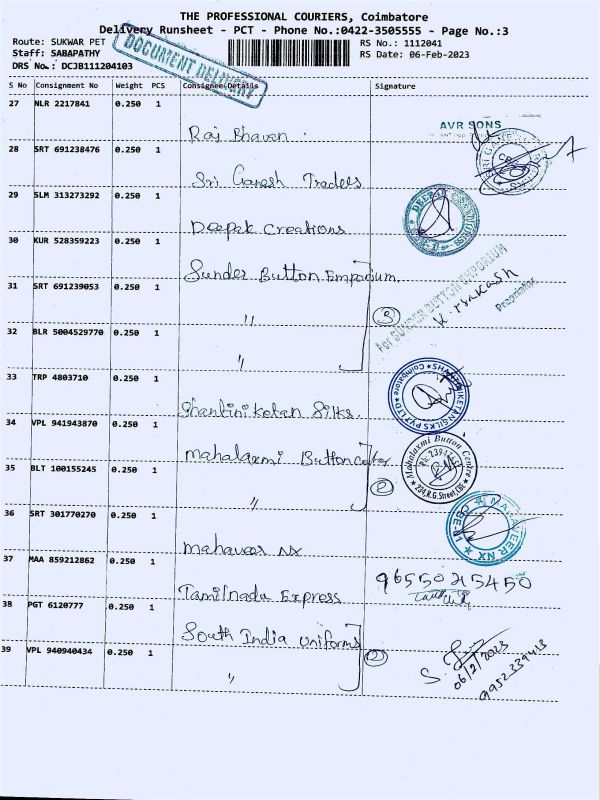 THE PROFESSIONAL COURIERS, Coimbatore
Delivery Runsheet - PCT - Phone No.:0422-3505555 - Page No.:3
Route: SUKWAR PET
RS No.: 1112041
Staff: SABAPATHY
RS Date: 06-Feb-2023
DRS No.: DCJB111204103
DOCUMENT DELIVERY
S No Consignment No Weight PCS Consignee Details Signature
27 NLR 2217841 0.250 1
Raj Bhavan
AVR SONS
28 SRT 691238476 0.250 1
Sri Ganesh Traders
29 SLM 313273292 0.250 1
Deepak Creations
30 KUR 528359223 0.250 1
Sunder Button Emporium.
For SUNDER BUTTON EMPORIUM
K. Prakash
Proprietor
31 SRT 691239053 0.250 1
"
3
32 BLR 5004529770 0.250 1
"
33 TRP 4803710 0.250 1
Shantiniketan Silks.
34 VPL 941943870 0.250 1
Mahalaxmi Button Center
Mahalaxmi Button Centre
234, R.G. Street, CBE
35 BLT 100155245 0.250 1
"
2
36 SRT 301770270 0.250 1
Mahaveer NX
MAHAVEER NX
37 MAA 859212862 0.250 1
Tamilnadu Express
38 PGT 6120777 0.250 1
South India Uniforms
2
39 VPL 940940434 0.250 1
"
06/2/2023